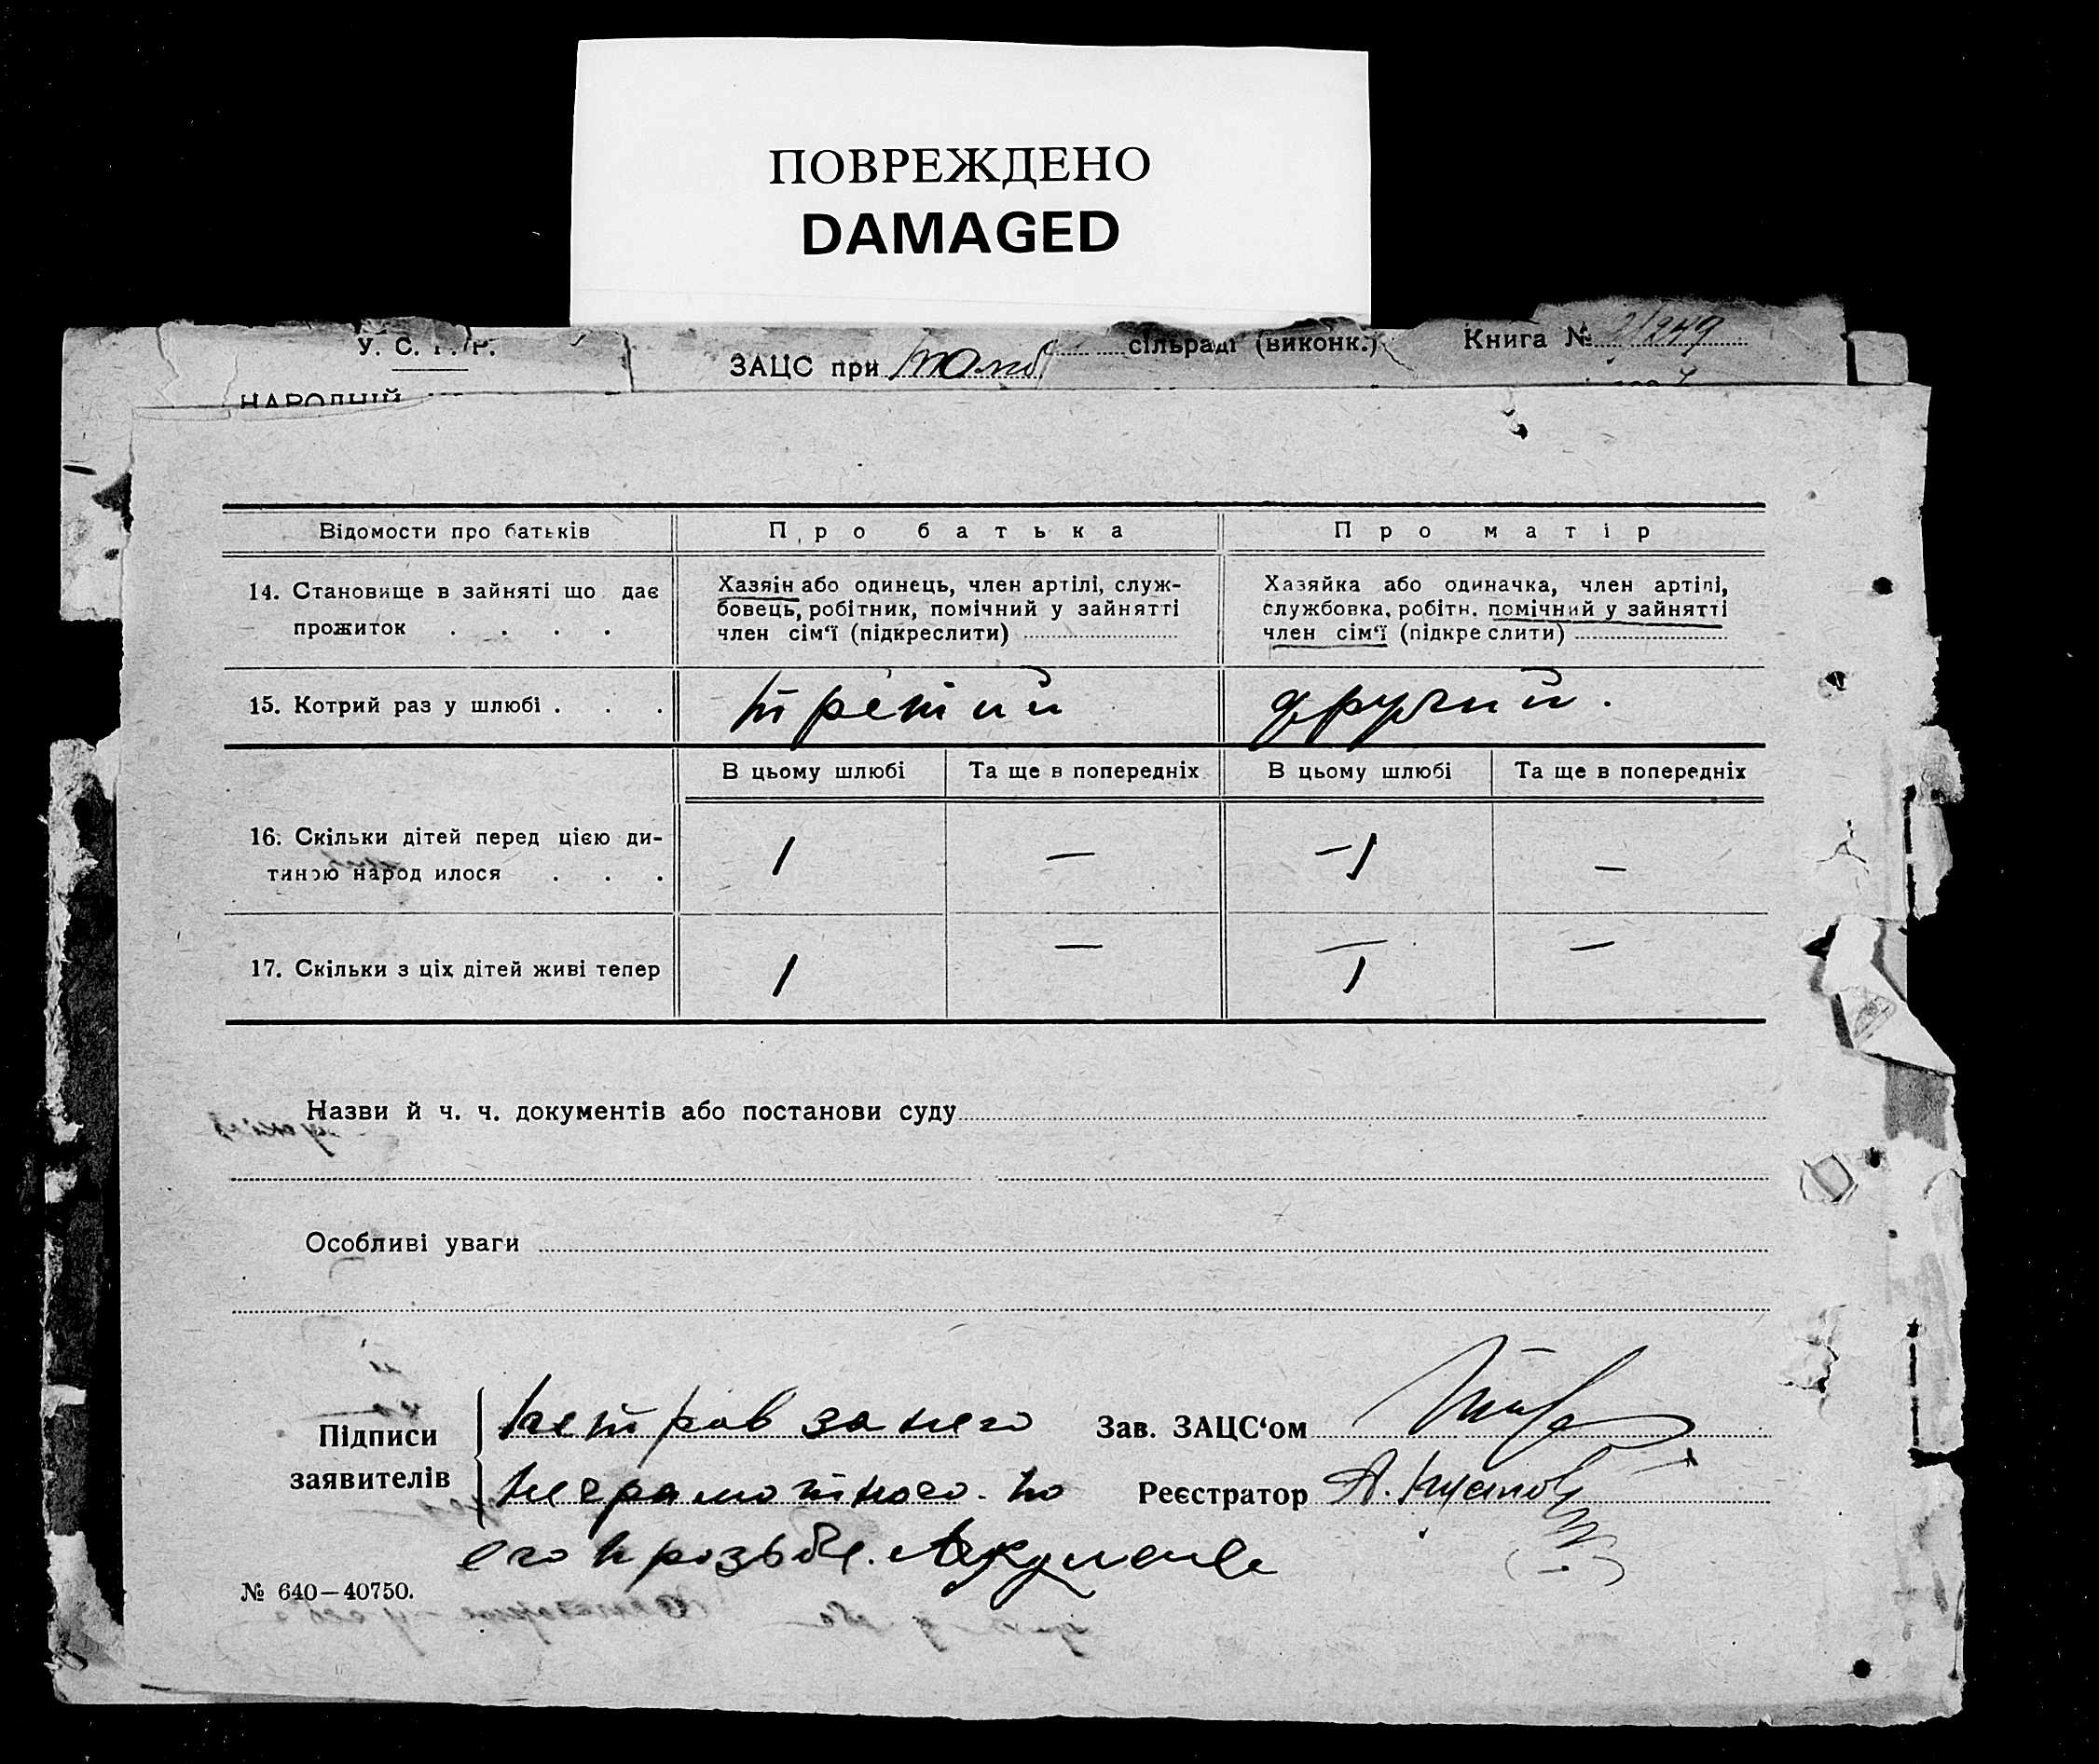 ПОВРЕЖДЕНО
DAMAGED
У. С. Р. Р.
ЗАЦС при
сільраді (виконк.)
Книга № 2/249
НАРОДНІЙ
Відомости про батьків
Про батька
Про матір
14. Становище в зайняті що дає
прожиток . . . .
Хазяін або одинець, член артілі, служ-
бовець, робітник, помічний у зайнятті
член сім‘ї (підкреслити)
Хазяйка або одиначка, член артілі,
службовка, робітн. помічний у зайнятті
член сім‘ї (підкреслити)
15. Котрий раз у шлюбі . . .
третий
другий.
В цьому шлюбі
Та ще в попередніх
В цьому шлюбі
Та ще в попередніх
16. Скільки дітей перед цією ди-
тиною народилося . . .
1
—
—1
—
17. Скільки з ціх дітей живі тепер
1
—
— 1
—
Назви й ч. ч. документів або постанови суду
Особливі уваги
Підписи
заявителів
Петров за него
неграмотного. по
его прозьбе.
Зав. ЗАЦС‘ом
Реєстратор А.
№ 640—40750.